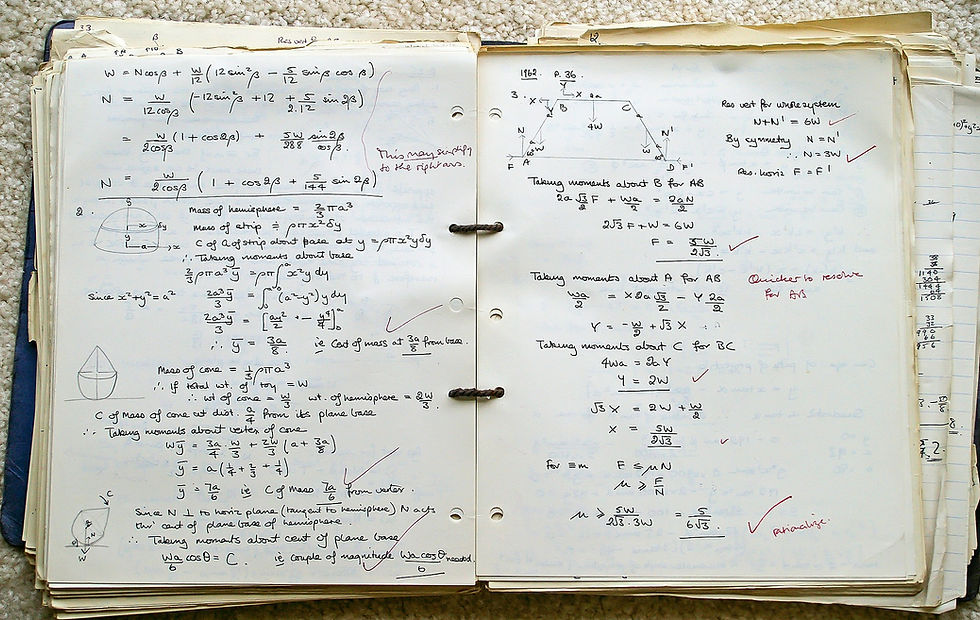 33
W = Ncosβ + W/12 (12sin²β − 5/12 sinβ cosβ)
N = W/12cosβ (−12sin²β + 12 + 5/2.12 sin2β)
= W/2cosβ (1 + cos2β) + 5W/288 sin2β/cosβ.
This may simplify
to the right ans.
N = W/2cosβ (1 + cos2β + 5/144 sin2β)
2.
Mass of hemisphere = 2/3 πa³
Mass of strip = ρπx²δy
C of G of strip about base at y = ρπx²yδy
∴ Taking moments about base
2/3 ρπa³ȳ = ρπ∫ₒᵃ x²y dy
Since x²+y² = a²
2a³ȳ/3 = ∫ₒᵃ (a²−y²)y dy
2a³ȳ/3 = [ay²/2 + − y⁴/4]ₒᵃ
∴ ȳ = 3a/8. ie Cent of mass at 3a/8 from base.
Mass of cone = 1/3 ρπa³
∴ If total wt. of toy = W
∴ wt of cone = W/3 wt. of hemisphere = 2W/3.
C of Mass of cone at dist. a/4 from its plane base
∴ Taking moments about vertex of cone
Wȳ = 3a/4 . W/3 + 2W/3 (a + 3a/8)
ȳ = a(1/4 + 2/3 + 1/4)
ȳ = 7a/6 ie C of Mass 7a/6 from vertex.
Since N ⊥ to horiz plane (tangent to hemisphere) N acts
thr' cent of plane base of hemisphere.
∴ Taking moments about cent of plane base
Wa/6 cosθ = C. ie couple of magnitude Wa cosθ/6 needed.
12.
1962. P. 36
3.
Y
X
2a
X
B
C
4W
N
N'
W
W
F
A
D
F'
Res vert for whole system
N+N' = 6W
By symmetry N = N'
∴ N = 3W
Res. horiz F = F'
Taking moments about B for AB
2a√3/2 F + Wa/2 = 2aN/2
2√3 F + W = 6W
F = 5W/2√3.
Taking moments about A for AB
Quicker to resolve
for AB
Wa/2 = X2a√3/2 − Y 2a/2
Y = −W/2 + √3 X
Taking moments about C for BC
4Wa = 2aY
Y = 2W
√3 X = 2W + W/2
X = 5W/2√3
For ≡m F ≤ μN
μ ≥ F/N
μ ≥ 5W/2√3.3W = 5/6√3.
rationalize.